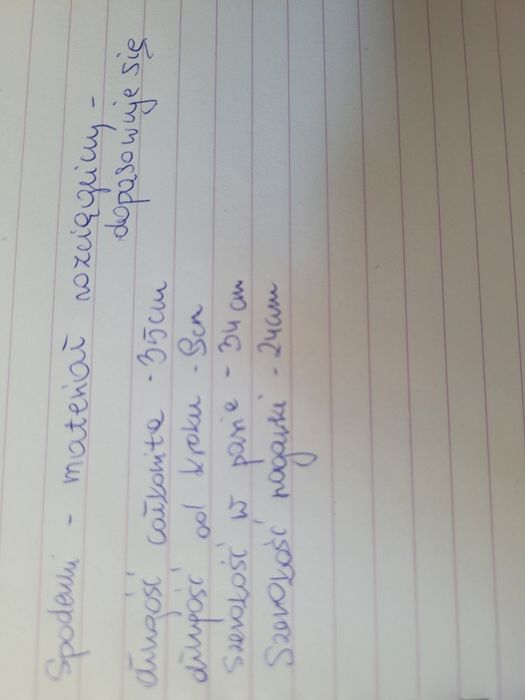 Spodenki - materiał rozciągliwy -
dopasowuje się
długość całkowita - 35cm
długość od kroku - 9cm
szerokość w pasie - 34 cm
szerokość nogawki - 24cm